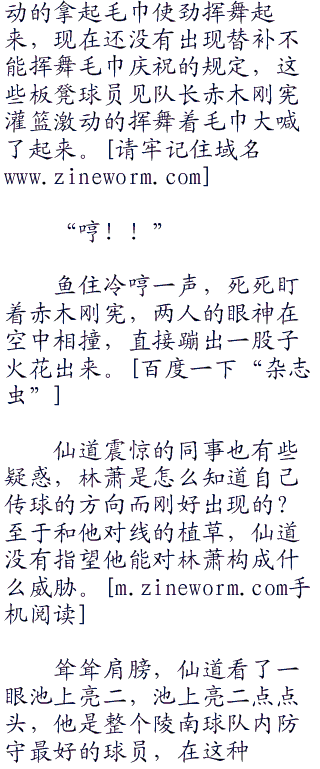 动的拿起毛巾使劲挥舞起
来，现在还没有出现替补不
能挥舞毛巾庆祝的规定，这
些板凳球员见队长赤木刚宪
灌篮激动的挥舞着毛巾大喊
了起来。[请牢记住域名
www.zineworm.com]
“哼！！”
鱼住冷哼一声，死死盯
着赤木刚宪，两人的眼神在
空中相撞，直接蹦出一股子
火花出来。[百度一下“杂志
虫”]
仙道震惊的同事也有些
疑惑，林萧是怎么知道自己
传球的方向而刚好出现的？
至于和他对线的植草，仙道
没有指望他能对林萧构成什
么威胁。[m.zineworm.com手
机阅读]
耸耸肩膀，仙道看了一
眼池上亮二，池上亮二点点
头，他是整个陵南球队内防
守最好的球员，在这种